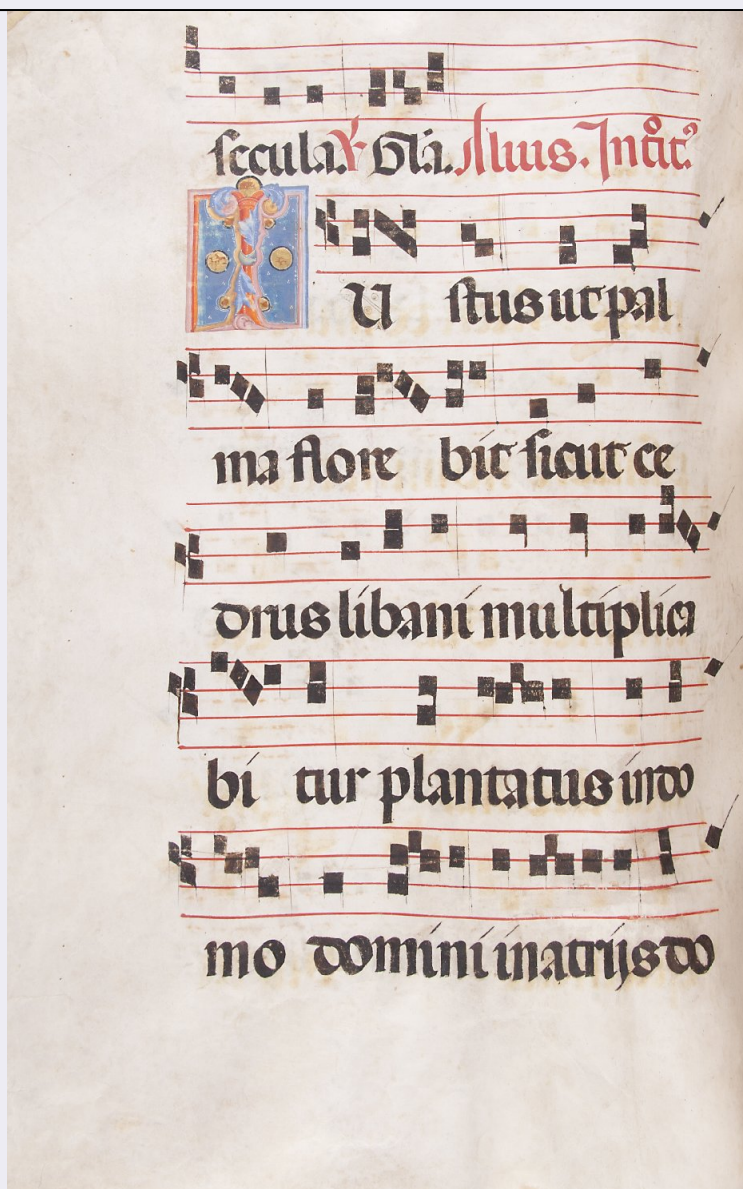 secula. ℣. Gla. Alius. Introit.
IU stus ut pal
ma flore bit sicut ce
drus libani multiplica
bi tur plantatus in do
mo domini in atrijs do